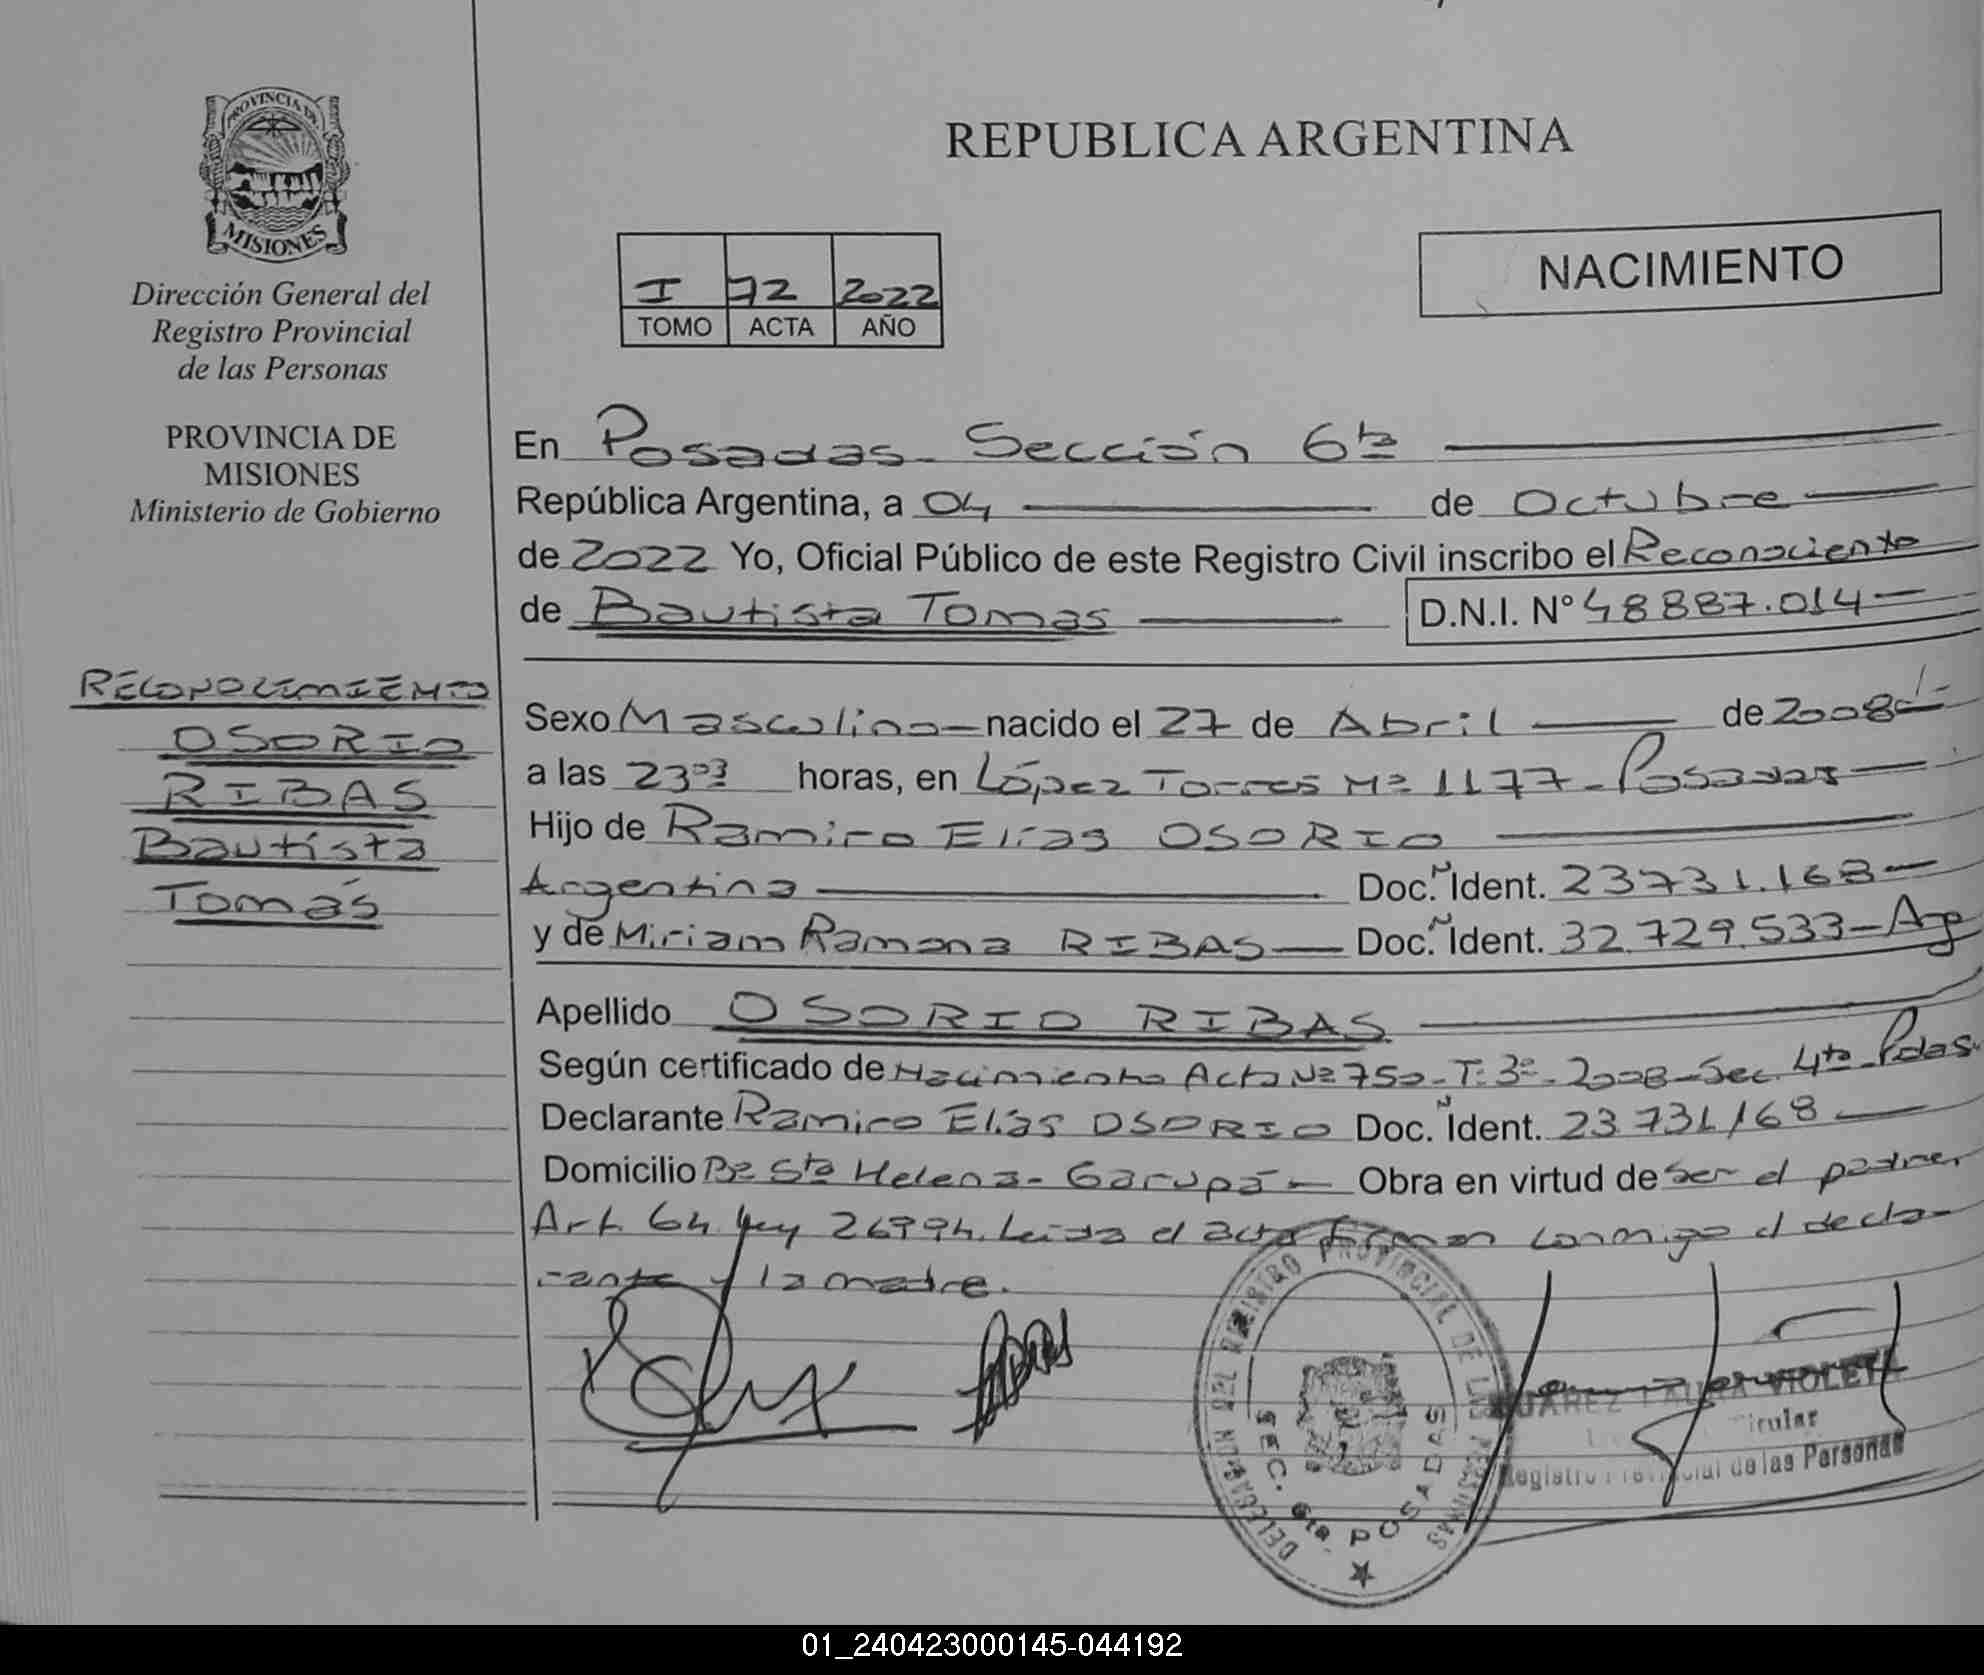 PROVINCIA DE
MISIONES
Dirección General del
Registro Provincial
de las Personas
PROVINCIA DE
MISIONES
Ministerio de Gobierno
RECONOCIMIENTO
OSORIO
RIBAS
Bautista
Tomás
REPUBLICA ARGENTINA
I 72 2022
TOMO ACTA AÑO
NACIMIENTO
En Posadas - Sección 6ta
República Argentina, a 04 de Octubre
de 2022 Yo, Oficial Público de este Registro Civil inscribo el Reconociento
de Bautista Tomas D.N.I. Nº 48887.014
Sexo Masculino nacido el 27 de Abril de 2008
a las 23:03 horas, en López Torres Nº 1177 - Posadas
Hijo de Ramiro Elías OSORIO
Argentina Doc. Ident. 23731.168
y de Miriam Ramona RIBAS Doc. Ident. 32.729.533 - Arg
Apellido OSORIO RIBAS
Según certificado de Nacimiento Acta Nº 750 - T: 3º - 2008 - Sec. 4ta Pdas.
Declarante Ramiro Elías OSORIO Doc. Ident. 23.731.168
Domicilio Bº Sta Helena - Garupá - Obra en virtud de ser el padre,
Art. 64 ley 26994. Leída el acta firman conmigo el decla-
rante y la madre.
DELEGACION DEL REGISTRO PROVINCIAL DE LAS PERSONAS
SEC. 6ta. POSADAS
LAURA VIOLETA
Titular
Registro Provincial de las Personas
01_240423000145-044192